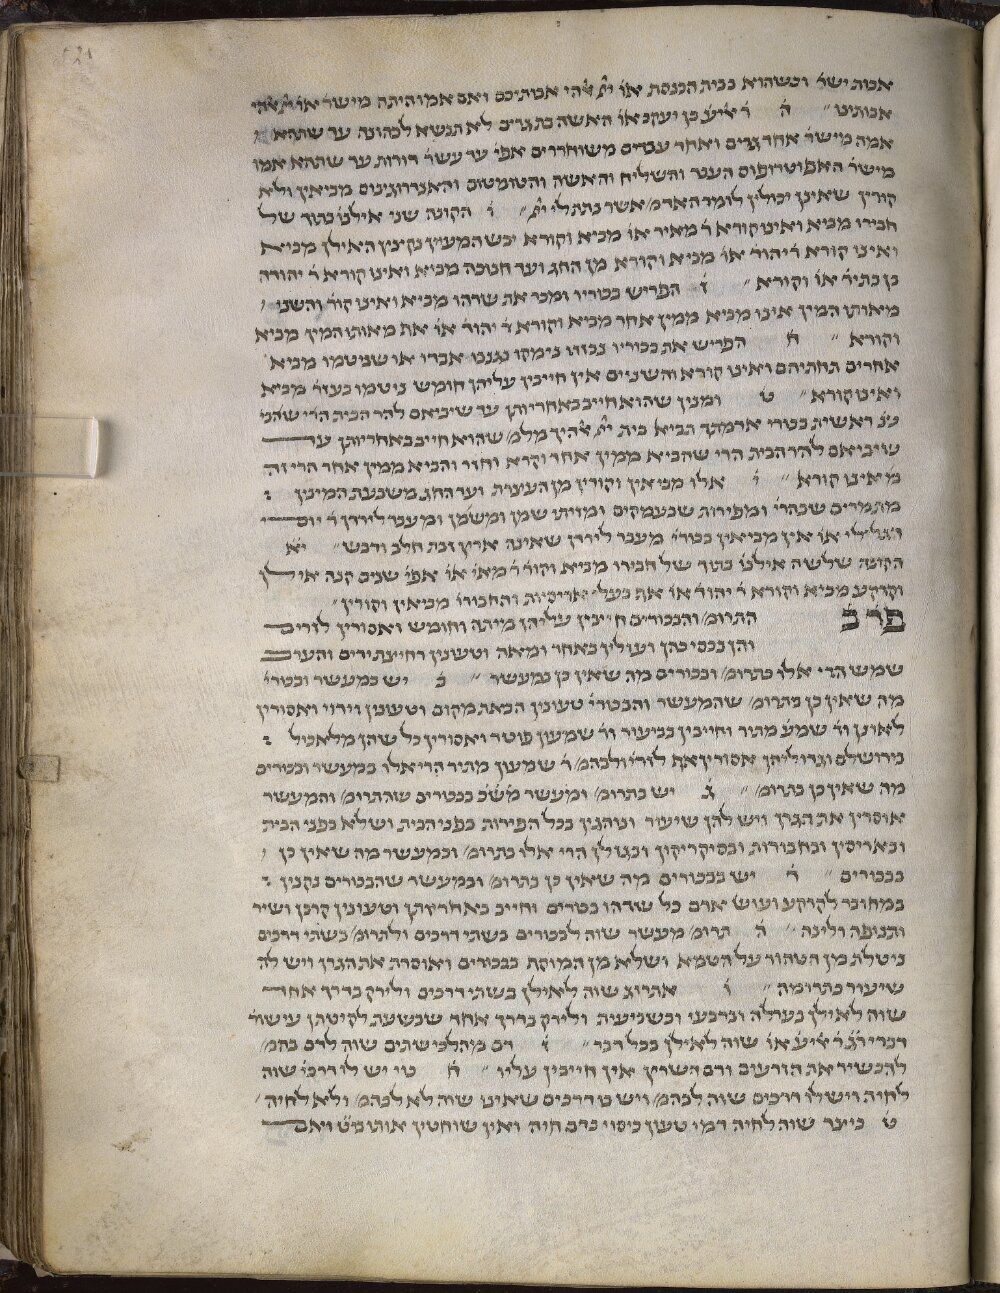 אבות ישר׳ וכשהוא בבית הכנסת או׳ ית׳ אלהי אבותיכם ואם אמו היתה מישר׳ או׳ ית׳ אלהי
אבותינו ה׳ ר׳ אליע׳ בן יעקב או׳ האשה בת גרים לא תנשא לכהונה עד שתהא
אמה מישר׳ אחד גרים ואחד עבדים משוחררים אפי׳ עד עשר׳ דורות עד שתהא אמו
מישר׳ האפוטרופוס העבד והשליח והאשה והטומטום והאנדרוגינוס מביאין ולא
קורין שאינן יכולין לומר האדמ׳ אשר נתת לי ית׳ ו׳ הקונה שני אילנ׳ בתוך של
חבירו מביא ואינו קורא ר׳ מאיר או׳ מביא וקורא יבש המעיין נקצץ האילן מביא
ואינו קורא ר׳ יהוד׳ או׳ מביא וקורא מן החג ועד חנוכה מביא ואינו קורא ר׳ יהודה
בן בתיר׳ או׳ וקורא ז׳ הפריש בכוריו ומכר את שדהו מביא ואינו קור׳ והשני
מאותו המין אינו מביא ממין אחר מביא וקורא ר׳ יהוד׳ או׳ את מאותו המין מביא
וקורא ח הפריש את בכוריו נבזזו נימקו נגנבו אבדו או שניטמו מביא
אחרים תחתיהם ואינו קורא והשניים אין חייבין עליהן חומש ניטמו בעזר׳ מביא
ואינו קורא ט ומנין שהוא חייב באחריותן עד שיביאם להר הבית הרי שהבי׳
ראשית בכורי אדמתך תביא בית ית׳ אלהיך מלמ׳ שהוא חייב באחריותן עד
שיביאם להר הבית הרי שהביא ממין אחד וקרא וחזר והביא ממין אחר הרי זה
מביא אינו קורא י׳ אלו מביאין וקורין מן העצרת ועד החג משבעת המינין
מתמרים שבהרי׳ ומפירות שבעמקים ומזיתי שמן ומשמן ומעבר לירדן ר׳ יוסי
הגלילי או׳ אין מביאין בכורי׳ מעבר לירדן שאינה ארץ זבת חלב ודבש יא
הקונה שלשה אילנ׳ בתוך של חבירו מביא וקור׳ ר׳ מאי׳ או׳ אפי׳ שנים קנה אילן
וקרקע מביא וקורא ר׳ יהוד׳ או׳ אף בעלי אריסיות והחכורו׳ מביאין וקורין
פר׳ ב התרומ׳ והבכורים חייבין עליהן מיתה וחומש ואסורין לזרים
והן נכסי כהן ועולין באחד ומאה וטעונין רחיצת ידים והערב
שמש הרי אלו בתרומ׳ ובכורים מה שאין כן במעשר ב יש במעשר ובכורי׳
מה שאין כן בתרומ׳ שהמעשר והבכורי׳ טעונין הבאת מקום וטעונין וידוי ואסורין
לאונן ור׳ שמע׳ מתיר וחייבין בביעור ור׳ שמעון פוטר ואסורין כל שהן מלאכול
בירושלם וגדוליהן אסורין אף לזרי׳ ולבהמ׳ ר׳ שמעון מתיר הרי אלו במעשר ובכורים
מה שאין כן בתרומ׳ ג יש בתרומ׳ ומעשר מש׳ כ׳ בבכורים שהתרומ׳ והמעשר
אוסרין את הגרן ויש להן שיעור ונוהגין בכל הפירות בפני הבית ושלא בפני הבית
ובאריסין ובחכורות ובסיקריקין ובגזלן הרי אלו בתרומ׳ ובמעשר מה שאין כן
בבכורים ד׳ יש בבכורים מה שאין כן בתרומ׳ ובמעשר שהבכורים נקנין
במחובר לקרקע ועושה אדם כל שדהו בכורים וחייב באחריותן וטעונין קרבן ושיר
ותנופה ולינה ה׳ תרומ׳ מעשר שוה לבכורים בשתי דרכים ולתרומ׳ בשתי דרכים
ניטלת מן הטהור על הטמא ושלא מן המוקף כבכורים ואוסרת את הגרן ויש לה
שיעור כתרומה ו׳ אתרוג שוה לאילן בשתי דרכים ולירק בדרך אחד
שוה לאילן בערלה וברבעי ובשביעית ולירק בדרך אחד שבשעת לקיטתו עישור׳
דברי ר״ג ר׳ אליע׳ או׳ שוה לאילן בכל דבר ז׳ דם מהלכי שתים שוה לדם בהמ׳
להכשיר את הזרעים ודם השרץ אין חייבין עליו ח׳ כוי יש לו דרכי׳ שוה
לחיה ויש לו דרכים שוה לבהמ׳ ויש בו דרכים שאינו שוה לא לבהמ׳ ולא לחיה
ט כיצד שוה לחיה דמו טעון כיסוי כדם חיה ואין שוחטין אותו ביו״ט ואם